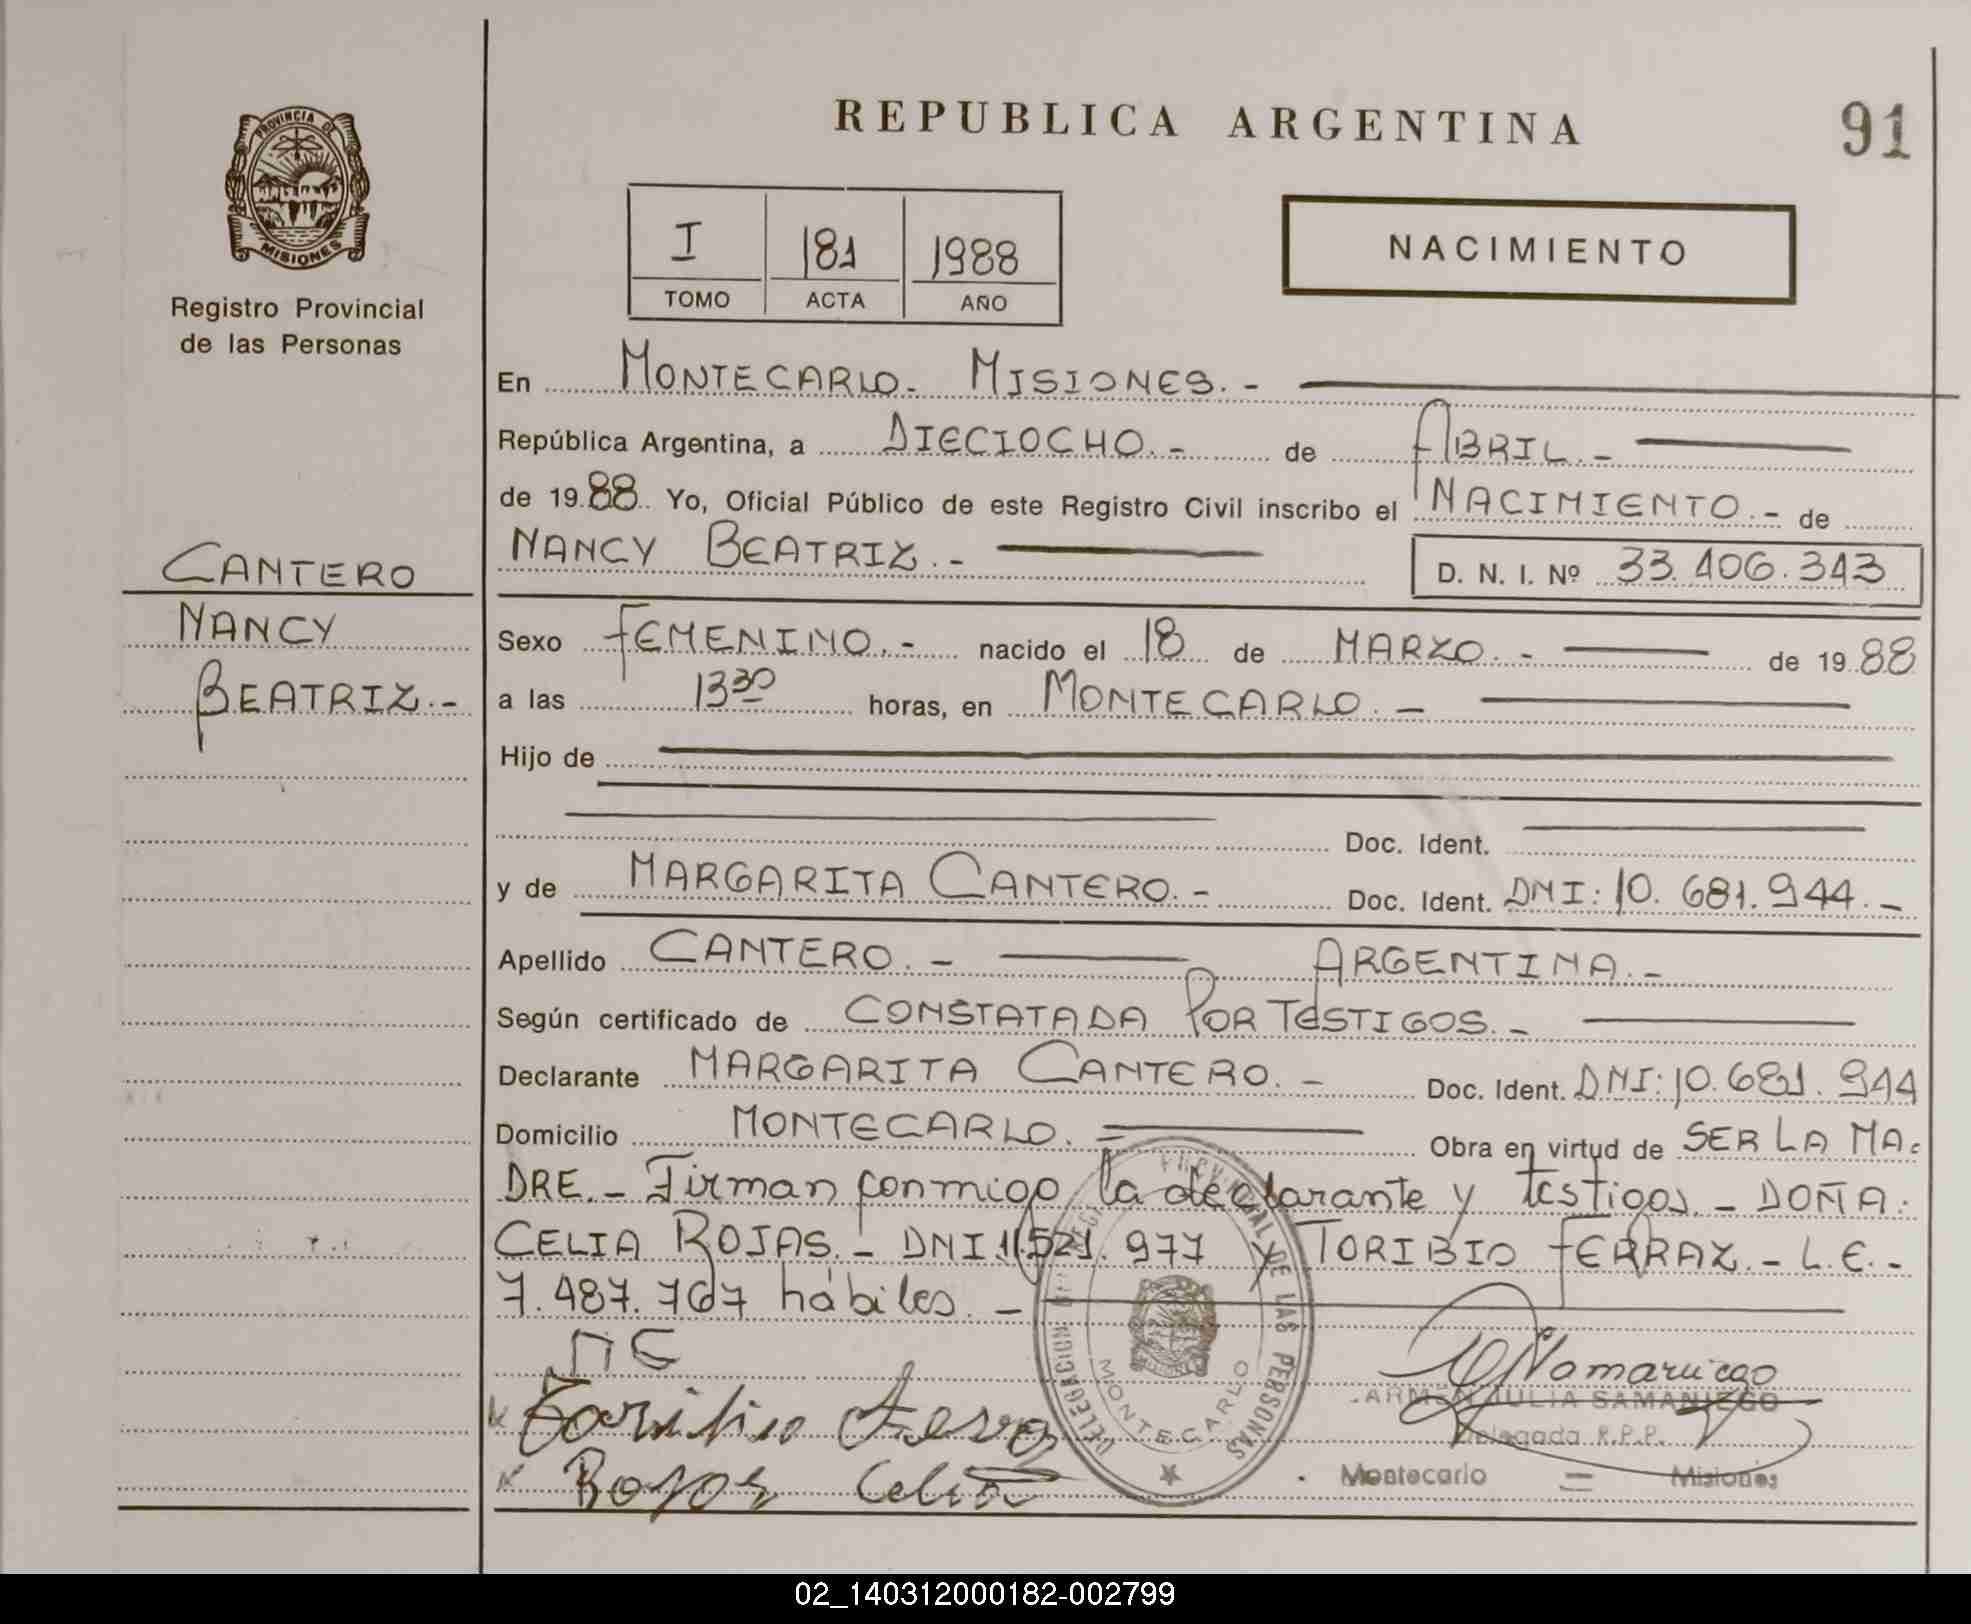 REPUBLICA ARGENTINA
91
PROVINCIA DE
MISIONES
Registro Provincial
de las Personas
I 181 1988
TOMO ACTA AÑO
NACIMIENTO
En MONTECARLO. MISIONES.-
República Argentina, a DIECIOCHO.- de ABRIL.-
de 1988 Yo, Oficial Público de este Registro Civil inscribo el NACIMIENTO.- de
NANCY BEATRIZ.- D. N. I. Nº 33.406.343
CANTERO
NANCY
BEATRIZ.-
Sexo FEMENINO.- nacido el 18 de MARZO.- de 1988
a las 13 30 horas, en MONTECARLO.-
Hijo de
Doc. Ident.
y de MARGARITA CANTERO.- Doc. Ident. DNI: 10.681.944.-
Apellido CANTERO.- ARGENTINA.-
Según certificado de CONSTATADA POR TESTIGOS.-
Declarante MARGARITA CANTERO.- Doc. Ident. DNI: 10.681.944
Domicilio MONTECARLO. Obra en virtud de SER LA MA-
DRE.- Firman conmigo la declarante y testigos.- DOÑA:
CELIA ROJAS.- DNI.11.521.977 y TORIBIO FERRAZ.- L.E.-
7.487.767 hábiles.-
MC
Toribio
Rojas Celia
DELEGACION DEL REGISTRO PROVINCIAL DE LAS PERSONAS
MONTECARLO
CARMEN JULIA SAMANIEGO
Delegada R.P.P.
Montecarlo = Misiones
02_140312000182-002799